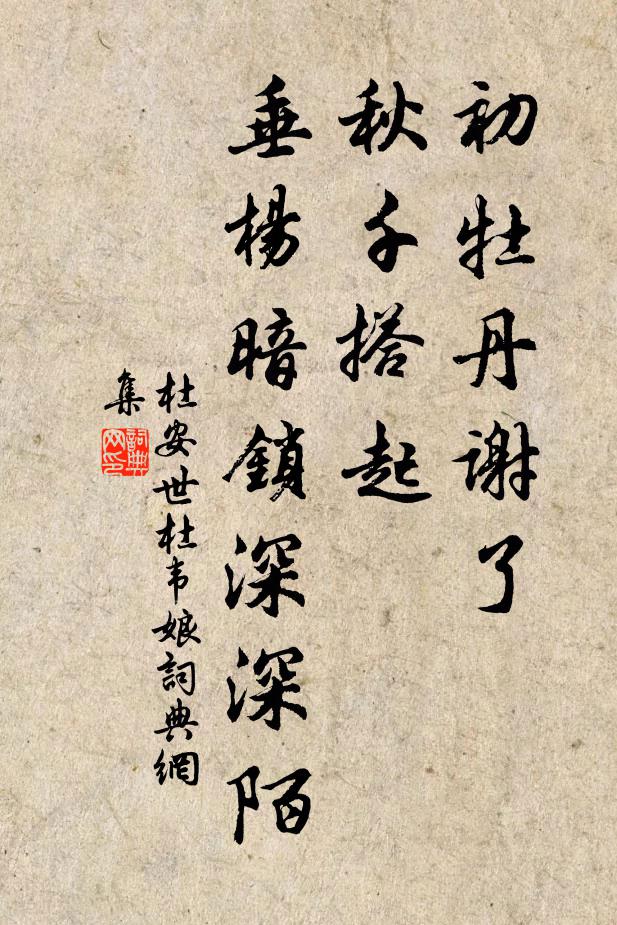 初牡丹謝了
秋千搭起
垂楊暗鎖深深陌
杜安世杜韦娘詞典網
集
詞典
网印